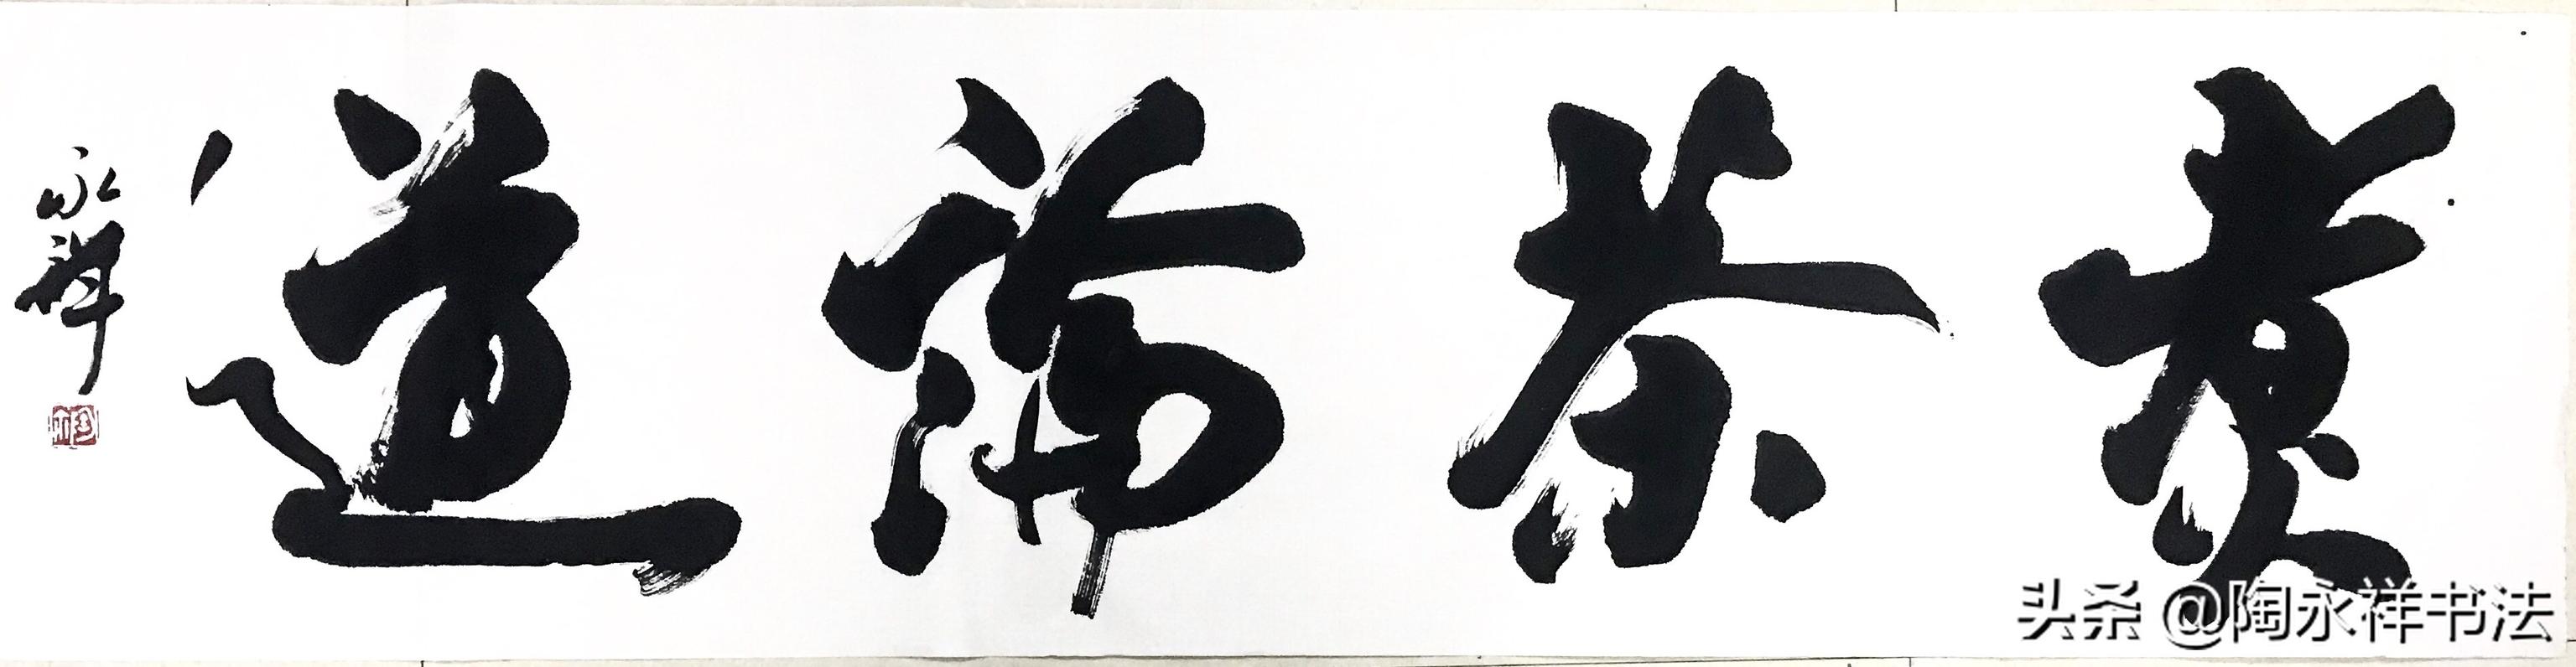 煮茶論道
永祥
头条 @陶永祥书法